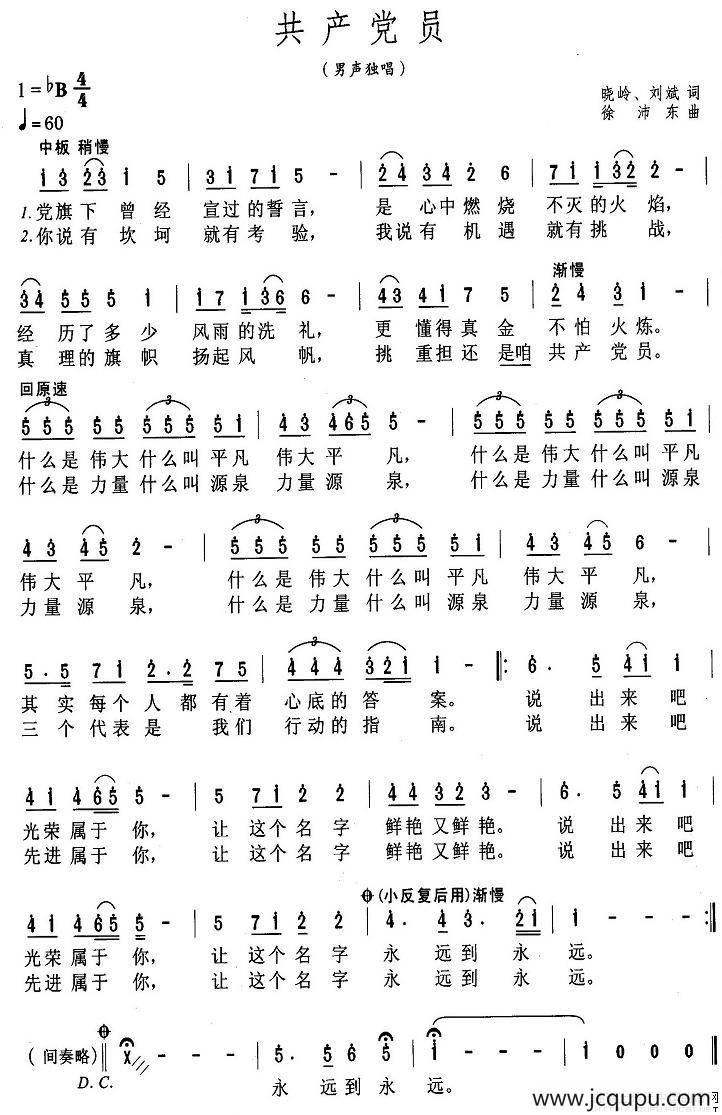 共产党员
（男声独唱）
1=♭B 4/4
晓岭、刘斌 词
徐沛东 曲
♩=60
中板 稍慢
i 3 23 i 5 | 3 i 7 i 5 - | 24 3 4 2 6 | 7 i i32 2 - |
1.党旗下 曾经 宣过的誓言， 是 心中燃烧 不灭的火焰，
2.你说有 坎坷 就有考验， 我说有 机遇 就有挑战，
渐慢
34 5 5 5 i | i 7 i36 6 - | 43 4 i 7 5 | 2 4 3 i - |
经 历了多少 风雨的洗礼， 更 懂得真金 不怕火炼。
真 理的旗帜 扬起风帆， 挑 重担还是咱 共产党员。
回原速
555 55 555 5i | 4 3 465 5 - | 555 55 555 5i |
什么是伟大什么叫平凡 伟大平 凡， 什么是伟大什么叫平凡
什么是力量什么叫源泉 力量源 泉， 什么是力量什么叫源泉
4 3 45 2 - | 555 55 555 5i | 4 3 45 6 - |
伟大平 凡， 什么是伟大什么叫平凡 伟大平 凡，
力量源 泉， 什么是力量什么叫源泉 力量源 泉，
5·5 7i 2·2 75 | 444 321 i - ‖: 6· 5 4i i |
其实每个人都有着 心底的答 案。 说 出来吧
三个代表是 我们 行动的指 南。 说 出来吧
4i 465 5 - | 5 7i 2 2 | 44 323 3 - | 6· 5 4i i |
光荣属于你， 让 这个名字 鲜艳又鲜艳。 说 出来吧
先进属于你， 让 这个名字 鲜艳又鲜艳。 说 出来吧
(小反复后用)渐慢
4i 465 5 - | 5 7i 2 2 | 4· 4 3· 2i | i - - - :‖
光荣属于你， 让 这个名字 永 远到 永 远。
先进属于你， 让 这个名字 永 远到 永 远。
(间奏略) X | i - - - | 5· 5 6 5 | i - - - | i 0 0 0 ‖
D.C.
永 远到永 远。
www.jcqupu.com